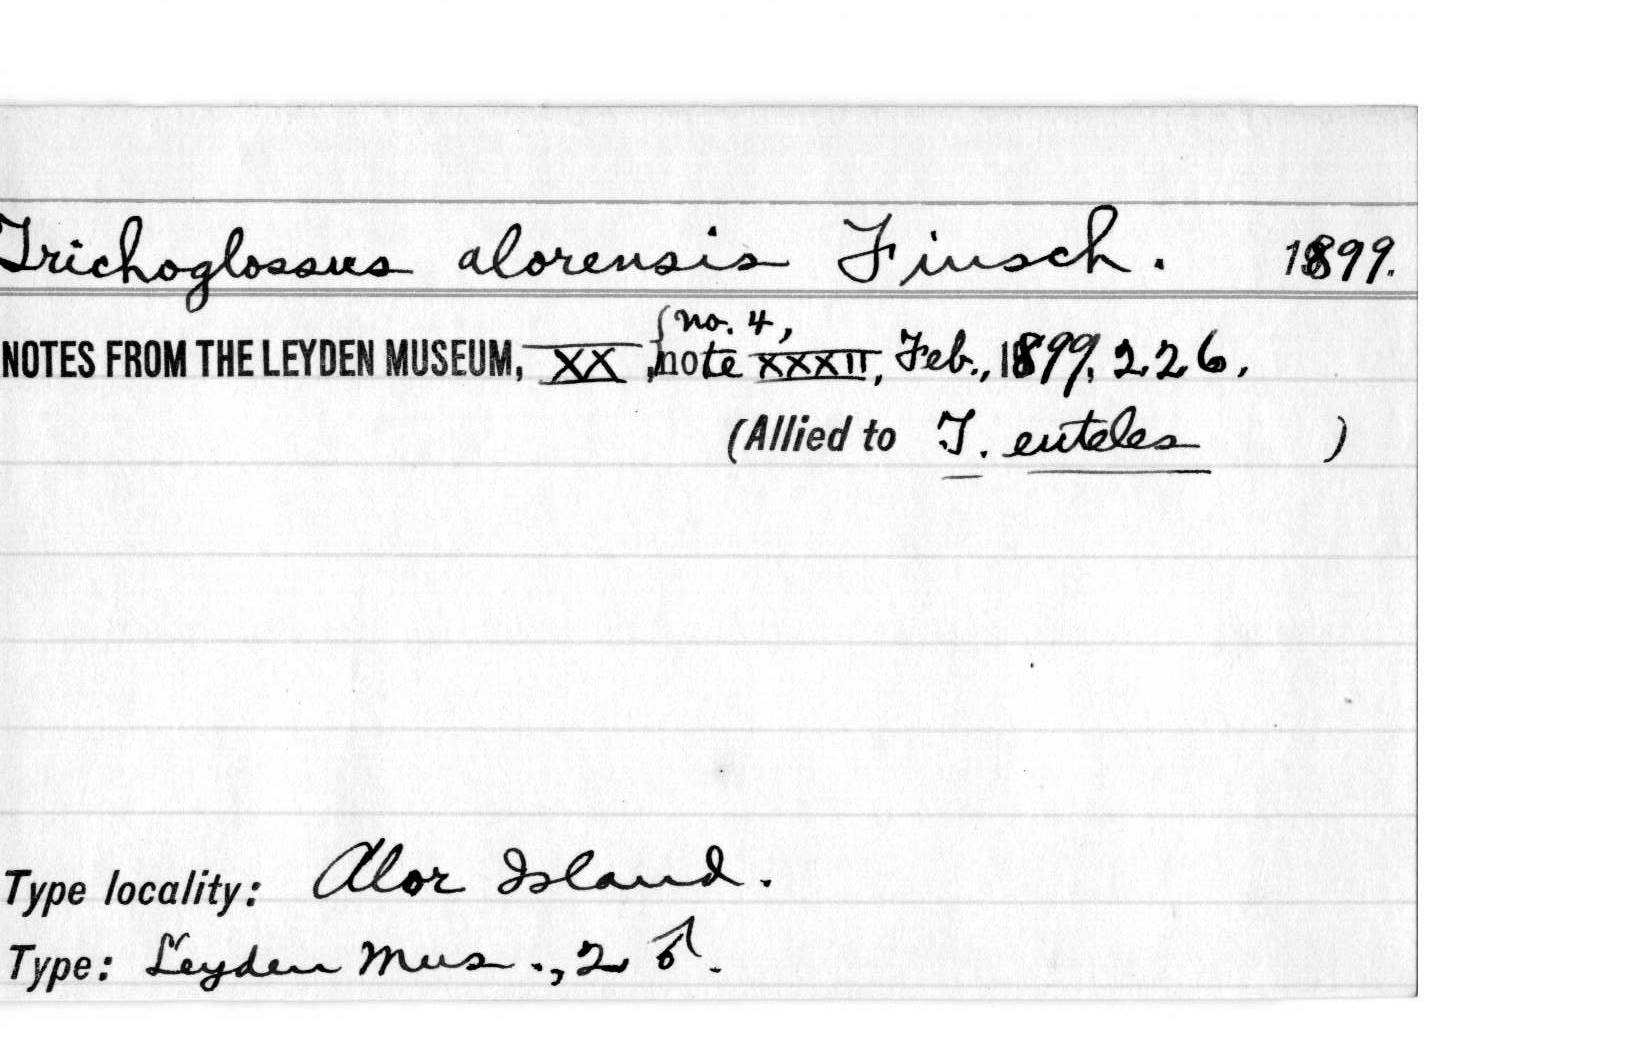 Trichoglossus alorensis Finsch. 1899.
NOTES FROM THE LEYDEN MUSEUM, XX, {no. 4, note XXXII, Feb., 1899, 226.
(Allied to T. euteles )
Type locality: Alor Island.
Type: Leyden Mus., 2 ♂.